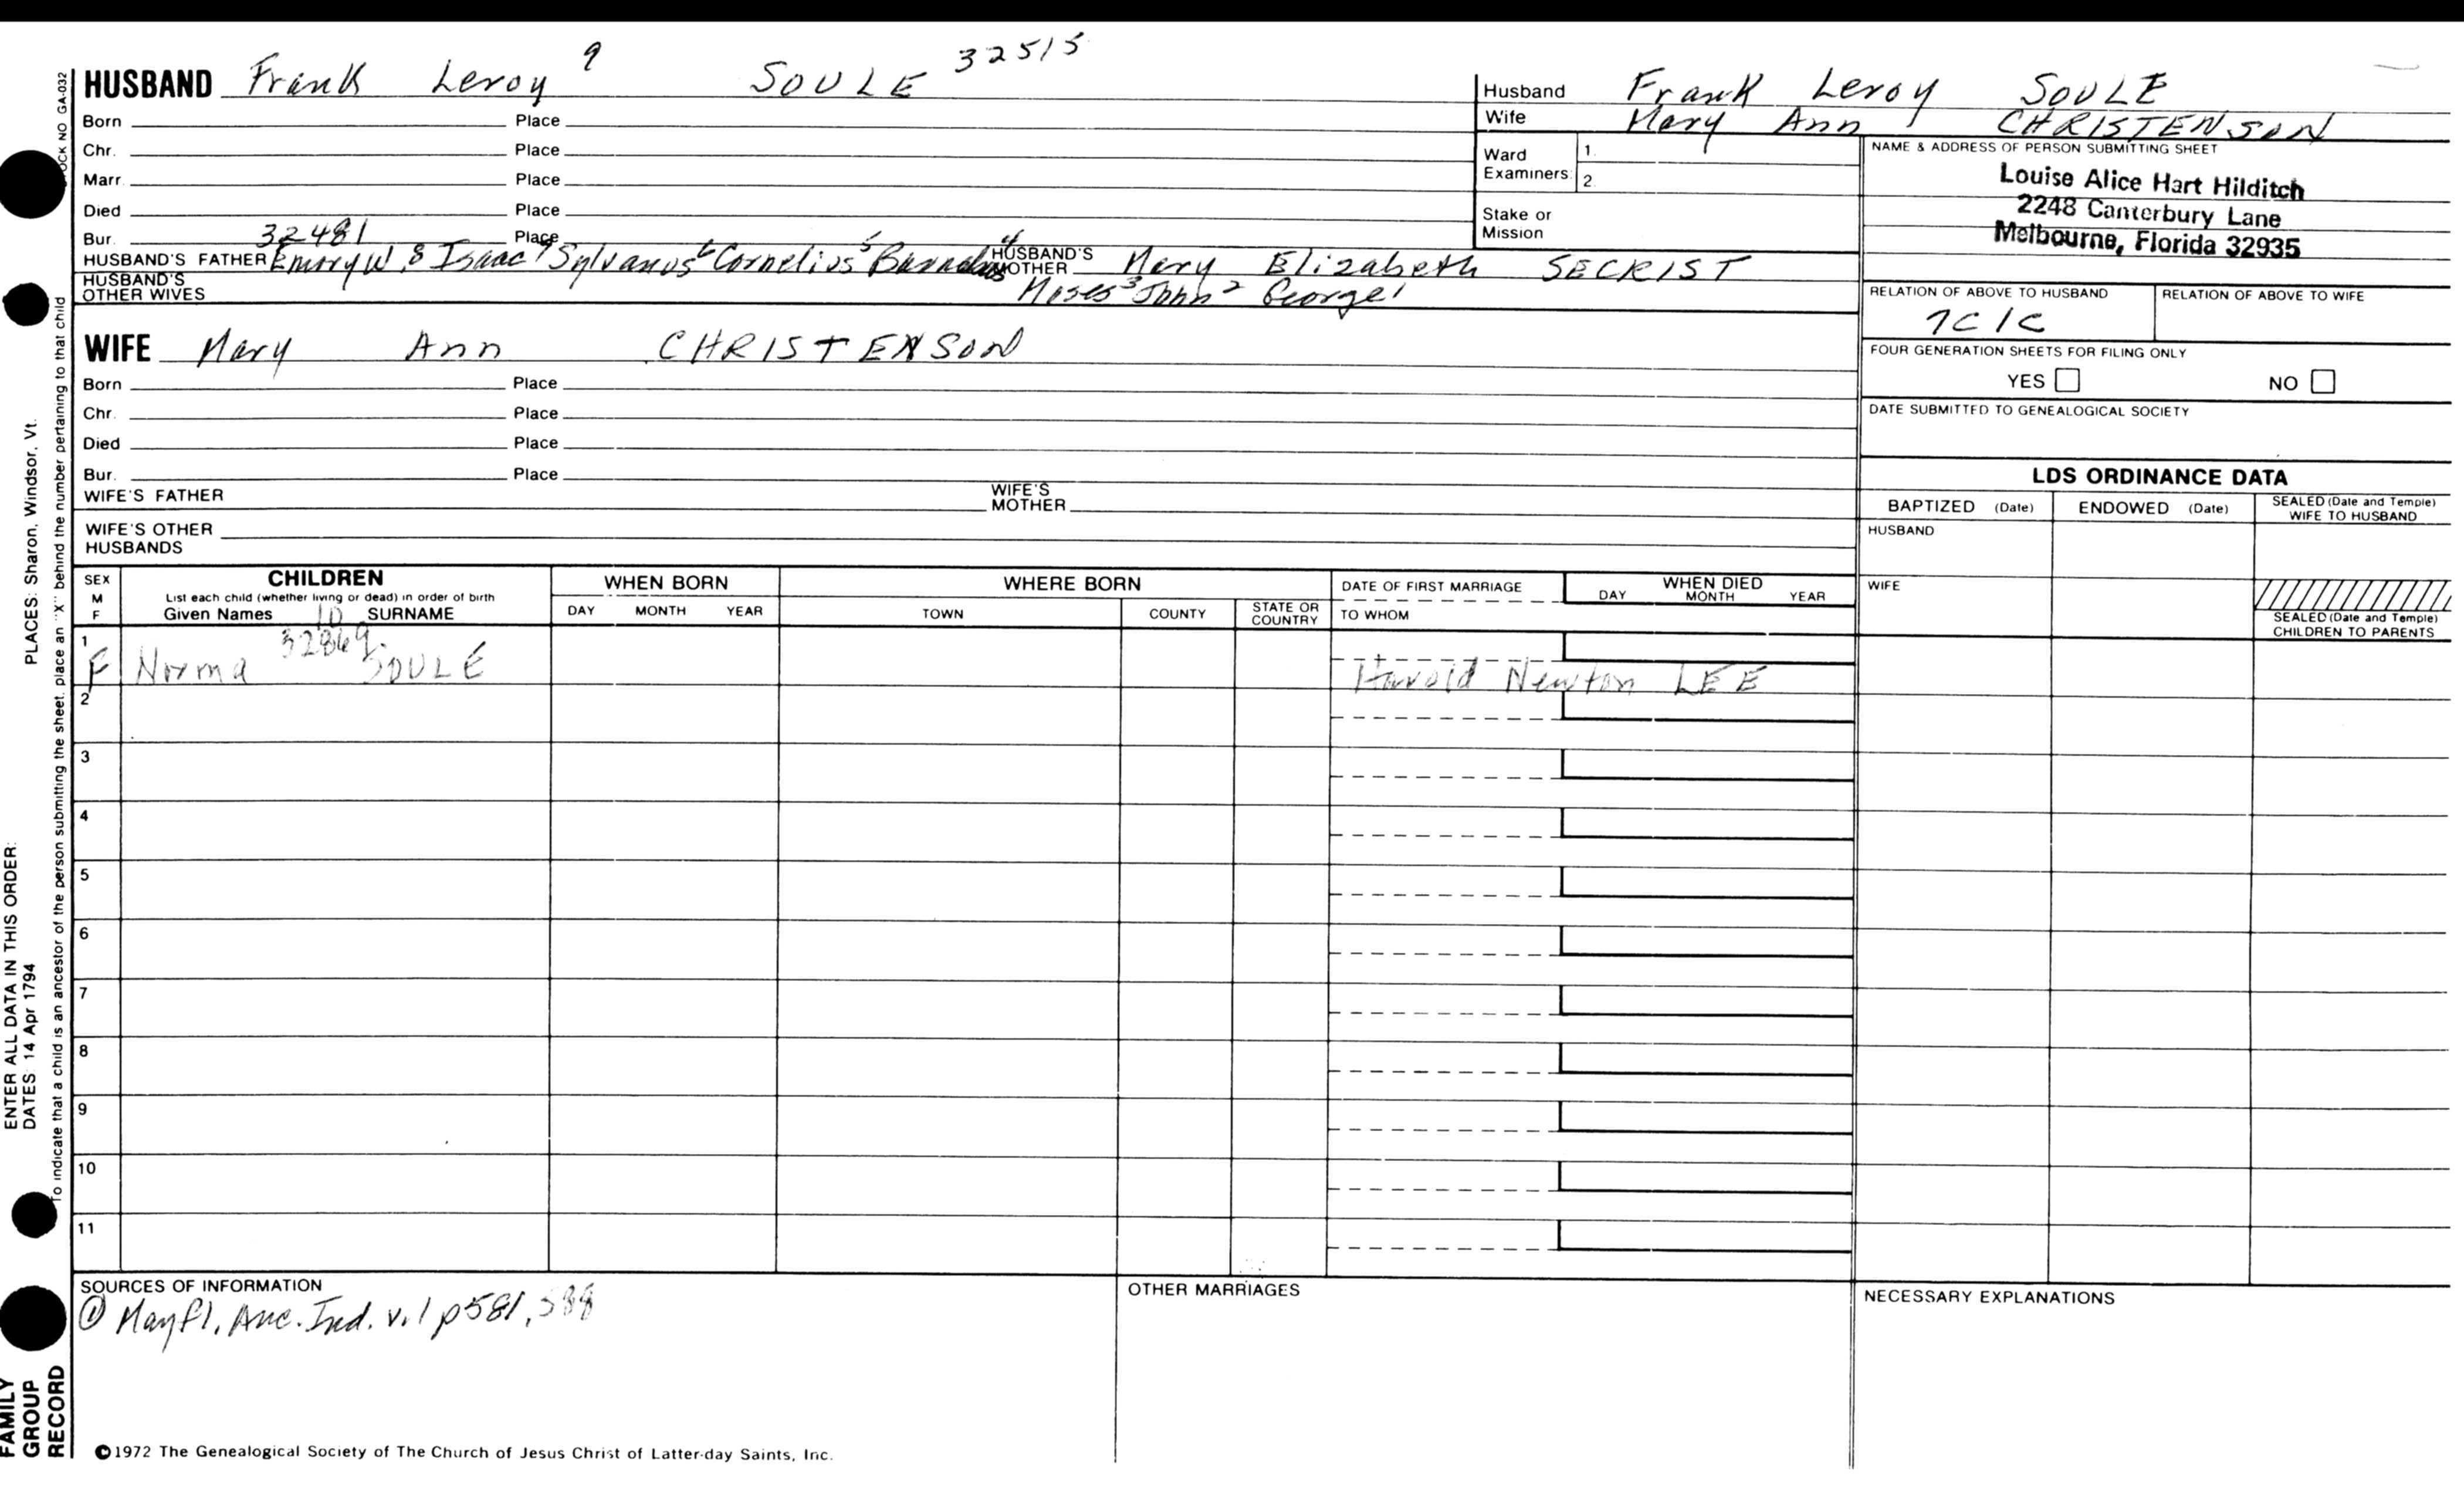 HUSBAND Frank Leroy 9 SOULE 32515
Born Place
Chr. Place
Marr. Place
Died Place
Bur. 32481 Place
HUSBAND'S FATHER Emory W. 8 Isaac 7 Sylvanus 6 Cornelius 5 Barnabas 4 HUSBAND'S MOTHER Mary Elizabeth SECRIST
HUSBAND'S OTHER WIVES Moses 3 John 2 George 1
WIFE Mary Ann CHRISTENSON
Born Place
Chr. Place
Died Place
Bur. Place
WIFE'S FATHER WIFE'S MOTHER
WIFE'S OTHER HUSBANDS
Husband Frank Leroy SOULE
Wife Mary Ann CHRISTENSON
Ward Examiners: 1.
2.
Stake or Mission
NAME & ADDRESS OF PERSON SUBMITTING SHEET
Louise Alice Hart Hilditch
2248 Canterbury Lane
Melbourne, Florida 32935
RELATION OF ABOVE TO HUSBAND RELATION OF ABOVE TO WIFE
7C1C
FOUR GENERATION SHEETS FOR FILING ONLY
YES NO
DATE SUBMITTED TO GENEALOGICAL SOCIETY
LDS ORDINANCE DATA
BAPTIZED (Date) ENDOWED (Date) SEALED (Date and Temple) WIFE TO HUSBAND
HUSBAND
WIFE
SEALED (Date and Temple) CHILDREN TO PARENTS
SEX M F CHILDREN WHEN BORN WHERE BORN DATE OF FIRST MARRIAGE WHEN DIED
List each child (whether living or dead) in order of birth
Given Names 10 SURNAME DAY MONTH YEAR TOWN COUNTY STATE OR COUNTRY TO WHOM DAY MONTH YEAR
1 32869
F Norma SOULE Harold Newton LEE
2
3
4
5
6
7
8
9
10
11
SOURCES OF INFORMATION OTHER MARRIAGES NECESSARY EXPLANATIONS
① Mayfl. Anc. Ind. v.1 p581, 588
©1972 The Genealogical Society of The Church of Jesus Christ of Latter-day Saints, Inc.
STOCK NO GA-032
To indicate that a child is an ancestor of the person submitting the sheet, place an "X" behind the number pertaining to that child
PLACES: Sharon, Windsor, Vt.
ENTER ALL DATA IN THIS ORDER:
DATES: 14 Apr 1794
FAMILY
GROUP
RECORD